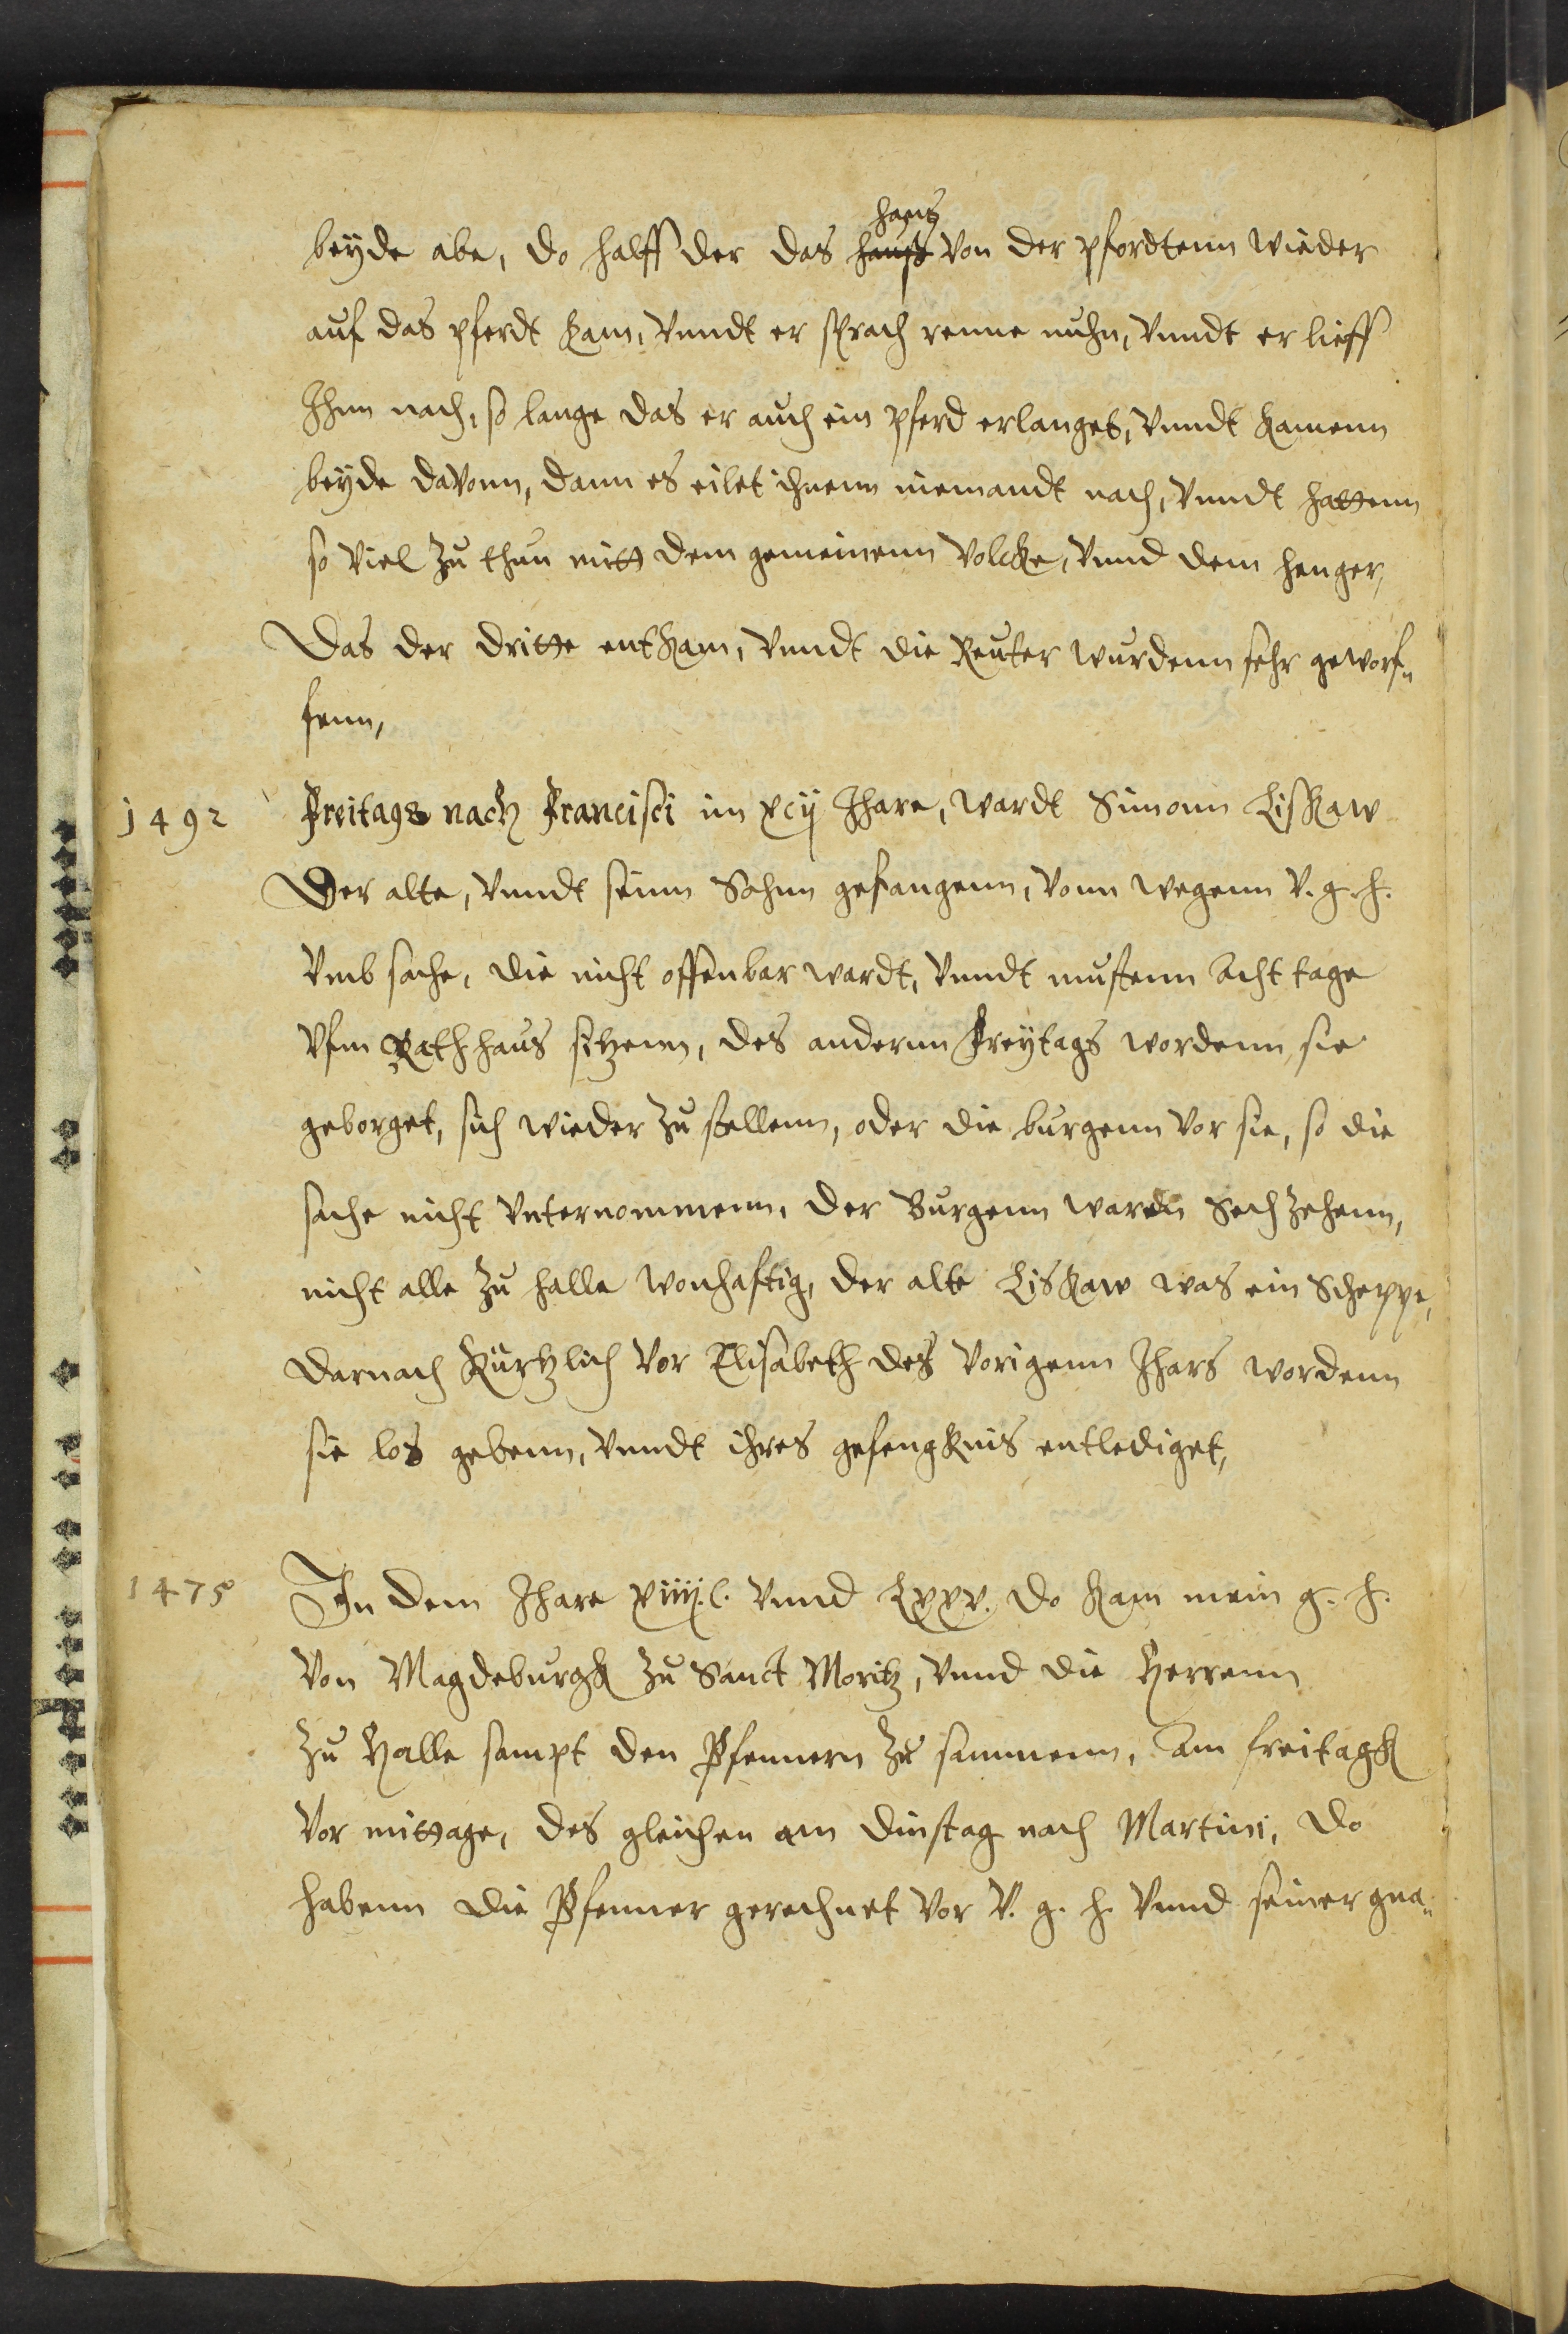 hantz
beyde abe, do halff der das hanß von der pfordtenn wieder
auf das pferdt kam, vnndt er sprach renne nuhn, vnndt er lieff
Ihm nach, so lange das er auch ein pferd erlanget, vnndt kamenn
beyde davonn, dann es eilet ihnenn niemandt nach, vnndt hattenn
so viel zu thun mitt dem gemeinenn volcke, vnnd dem henger,
Das der dritte entkam, vnndt die Reuter wurdenn sehr geworf„
fenn,
1492 Freitags nach Francisci im xcij Jhare, wardt Simonn Liskaw
Der alte, vnndt seinn Sohnn gefangenn, vonn wegenn v. g. h.
vmb sache, die nicht offenbar wardt, vnndt mustenn Acht tage
vfm Rathhaus sitzenn, des anderenn Freytags wordenn sie
geborget, sich wieder zu stellenn, oder die burgenn vor sie, so die
sache nicht vnternommenn, der Burgenn warenn Sechzehenn,
nicht alle zu halle wonhaftig, der alte Liskaw was ein Scheppe,
darnach kürtzlich vor Elisabeth des vorigenn Jhars wordenn
sie los gebenn, vnndt ihres gefengknis entlediget,
1475 In dem Jhare xiiij.c. vnnd Lxxv. do kam mein g. h.
von Magdeburgk zu Sanct Moritz, vnnd die Herrenn
zu Halle sampt den Pfennern zu sammenn, Am freitagk
vor mittage, des gleichen am dinstag nach Martini, do
habenn die Pfenner gerechnet vor V. g. h. vnnd seiner gna„